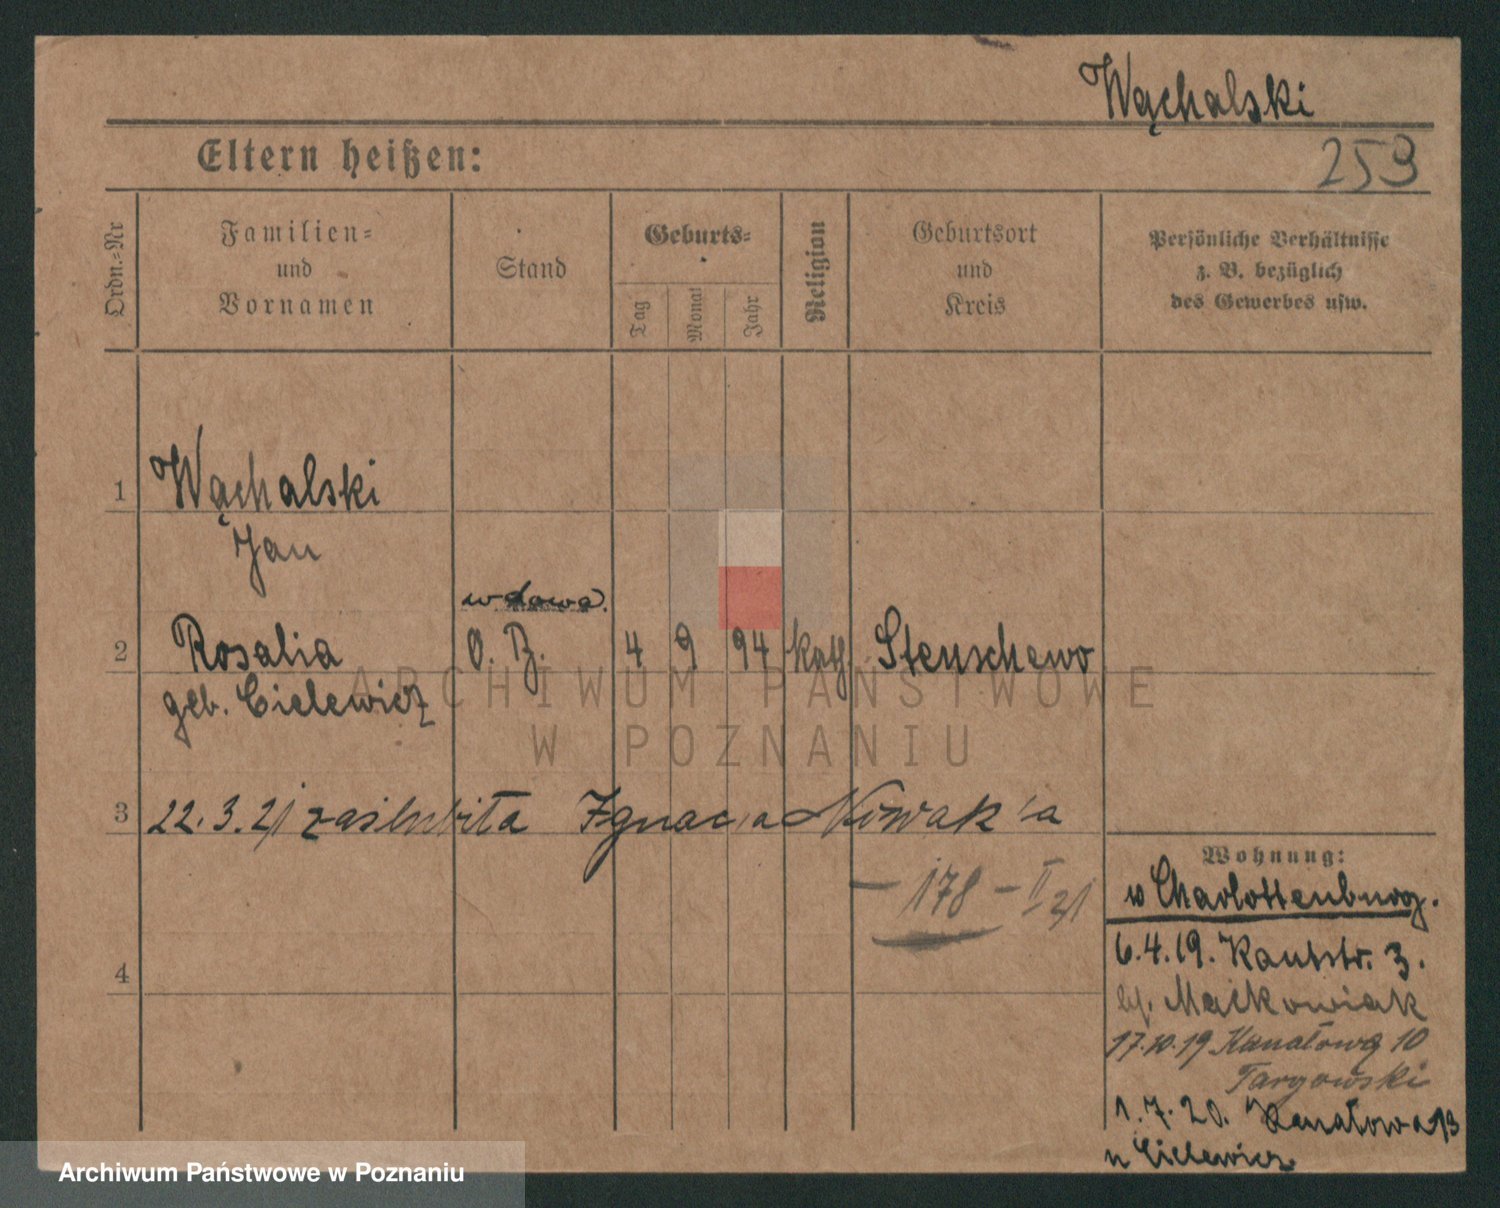 Wąchalski
Eltern heißen:
259
Ordn.-Nr
Familien-
und
Vornamen
Stand
Geburts-
Tag
Monat
Jahr
Religion
Geburtsort
und
Kreis
Persönliche Verhältnisse
z. B. bezüglich
des Gewerbes usw.
1 Wąchalski
Jan
wdowa.
2 Rosalia O. B. 4 9 94 kath Stenschewo
geb. Cielewicz
3 22.3.21 zaślubiła Ignacia Nowak'a
— 178 — II 21
4
Wohnung:
w Charlottenburg.
6.4.19. Kantstr. 3.
bf. Maćkowiak
17.10.19 Kanałowa 10
Targowski
1.7.20. Kanałowa 13
u Cielewicz
ARCHIWUM PAŃSTWOWE
W POZNANIU
Archiwum Państwowe w Poznaniu